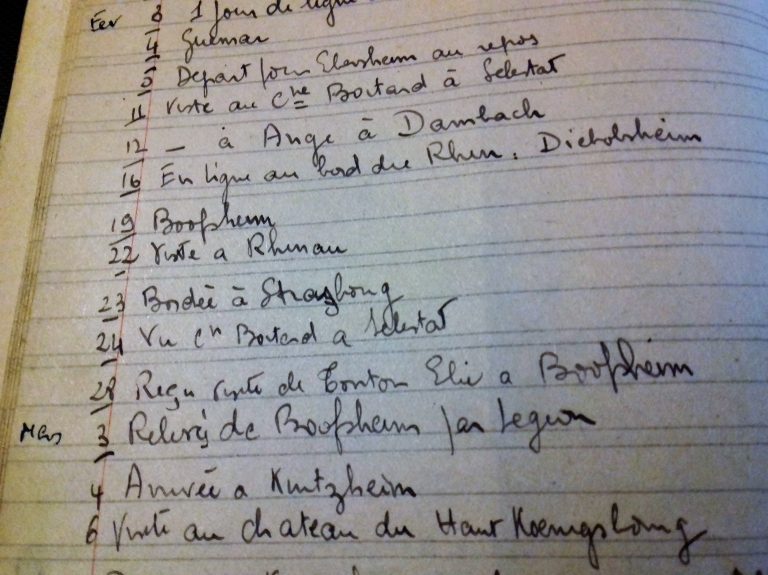 Fev 3 1 jour de ligne
4 Guémar
5 Départ pour Ebersheim au repos
11 Visite au Cne Boutard à Selestat
12 _ à Ange à Dambach
16 En ligne au bord du Rhin. Diebolsheim
19 Boofsheim
22 Visite a Rhinau
23 Bordée à Strasbourg
24 Vu Cn Boutard a Selestat
28 Reçu visite de Tonton Elie a Boofsheim
Mars 3 Relevés de Boofsheim par Legion
4 Arrivée a Kintzheim
6 Visite au chateau du Haut Koenigsbourg